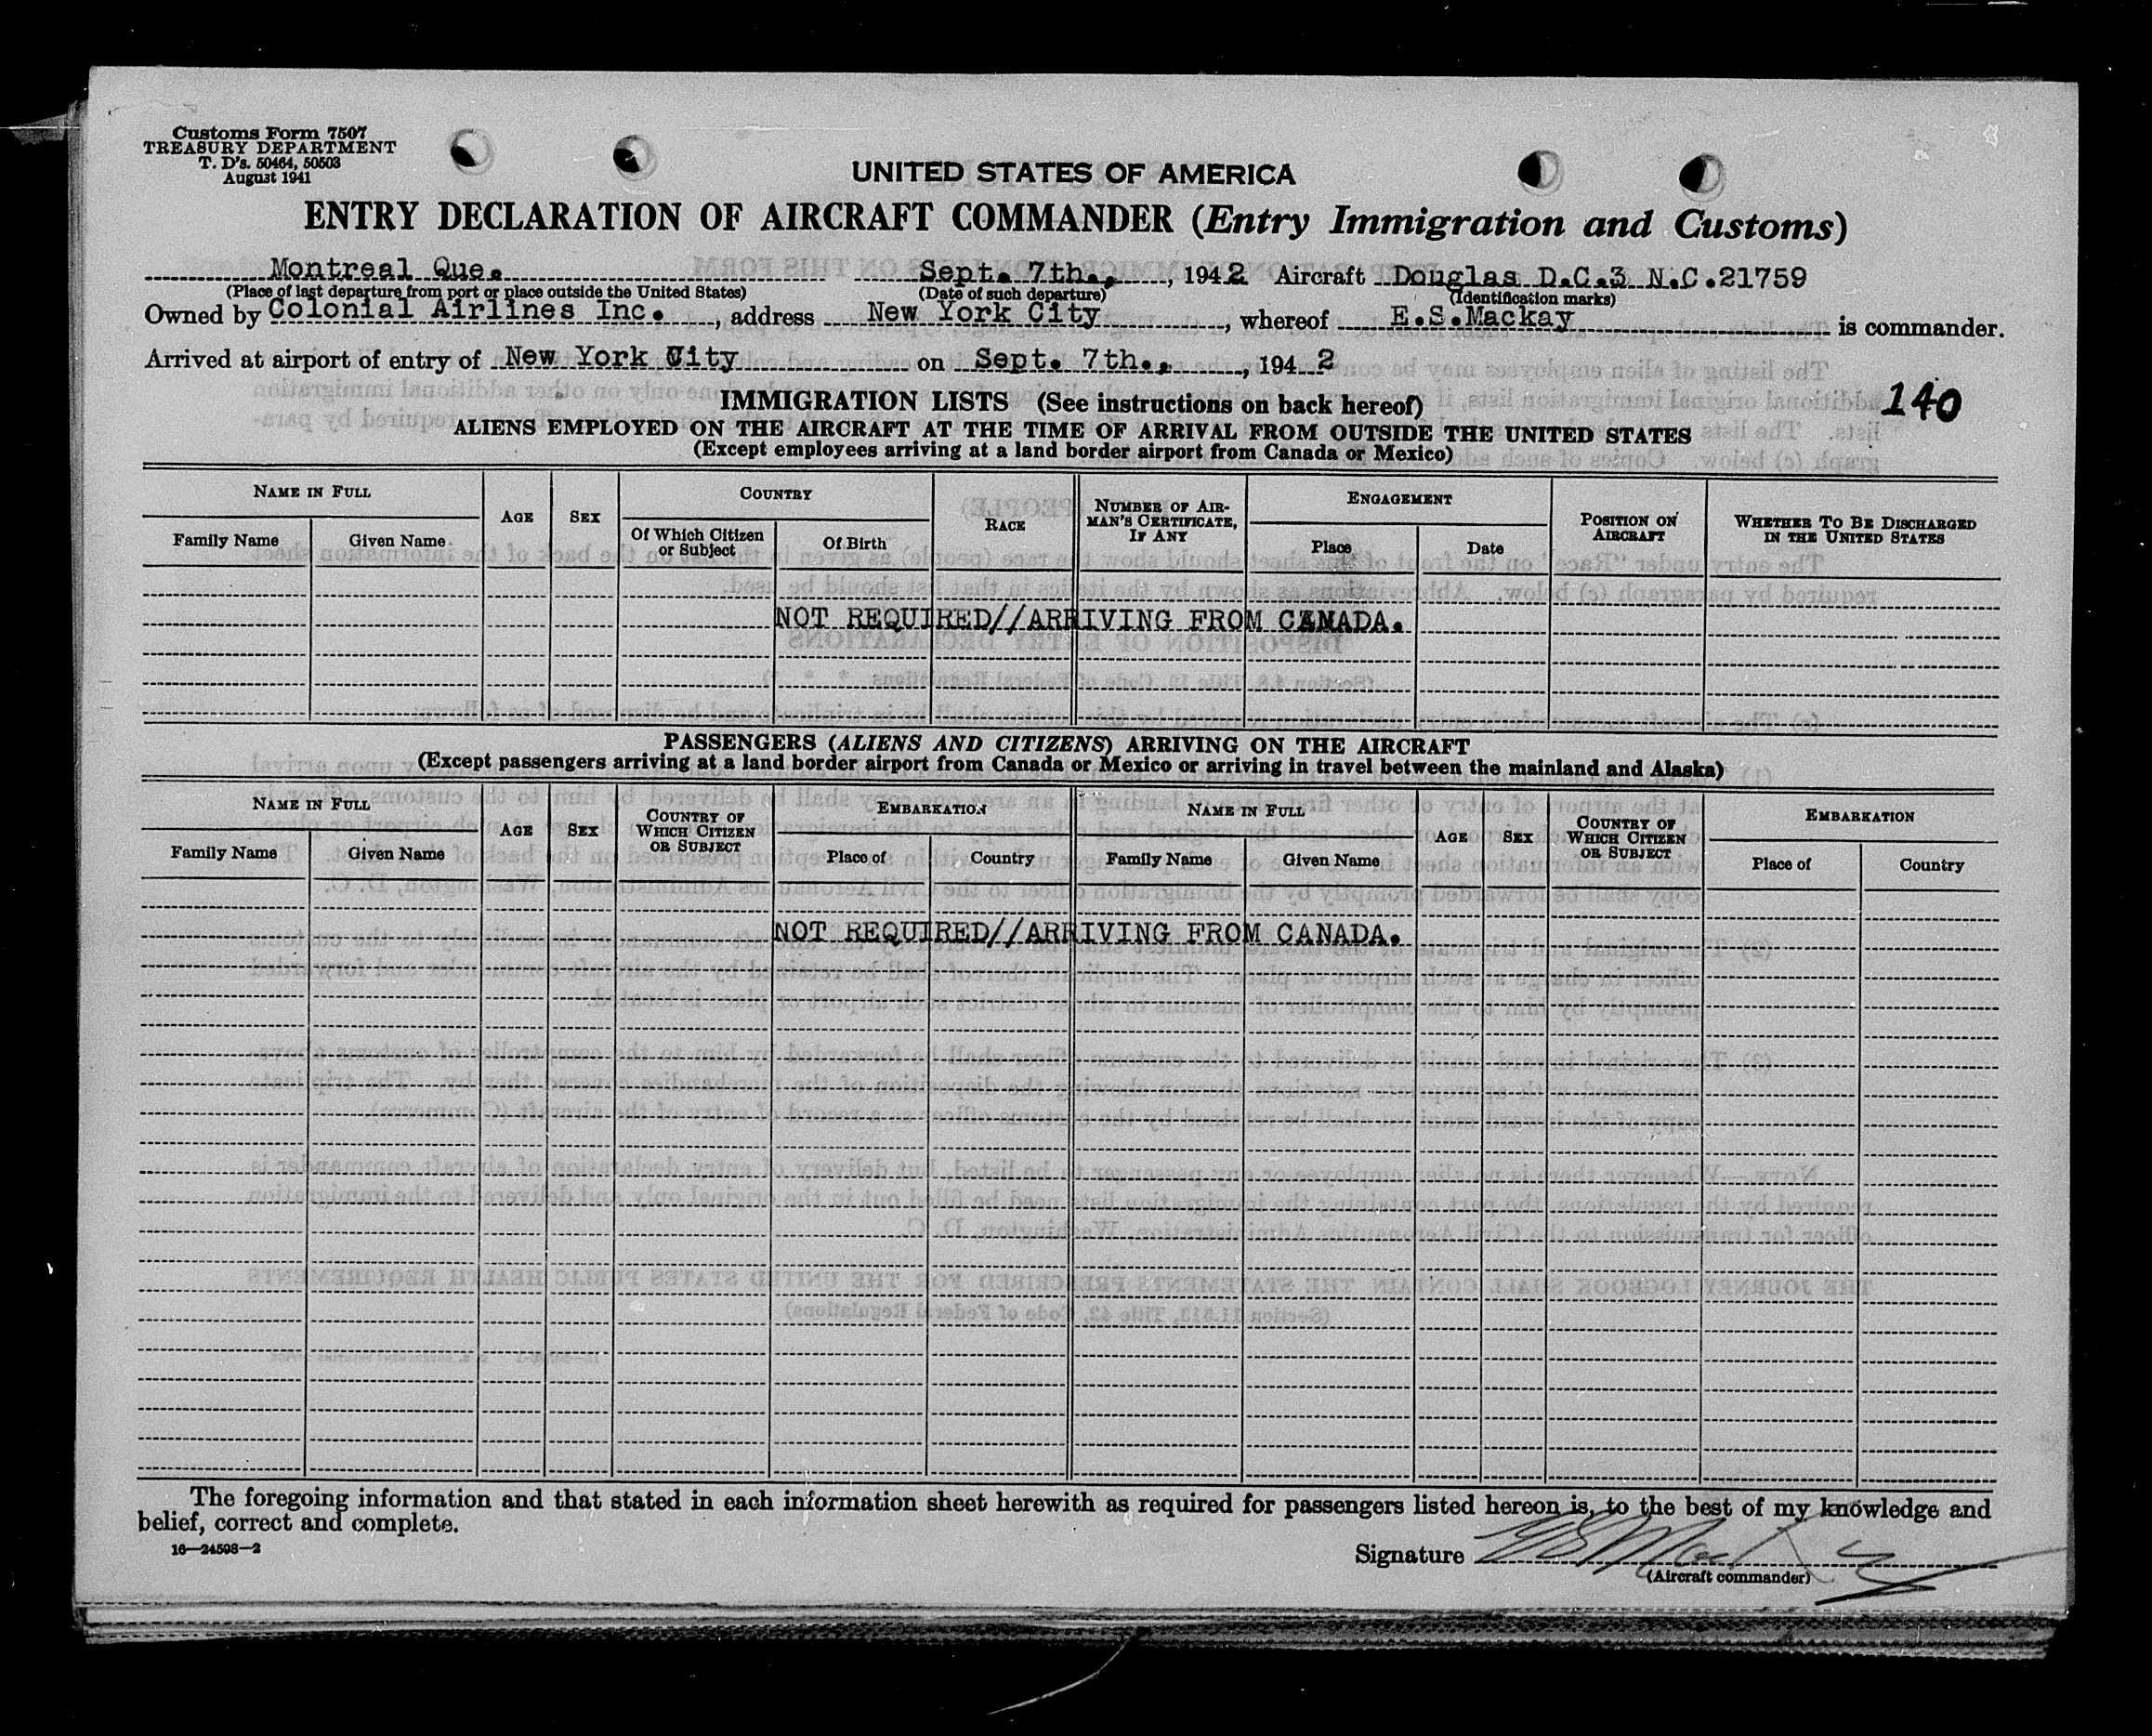 Customs Form 7507
TREASURY DEPARTMENT
T. D's. 50464, 50503
August 1941
UNITED STATES OF AMERICA
ENTRY DECLARATION OF AIRCRAFT COMMANDER (Entry Immigration and Customs)
Montreal Que. Sept. 7th., 1942 Aircraft Douglas D.C.3 N.C.21759
(Place of last departure from port or place outside the United States) (Date of such departure) (Identification marks)
Owned by Colonial Airlines Inc., address New York City, whereof E.S.Mackay is commander.
Arrived at airport of entry of New York City on Sept. 7th., 1942
140
IMMIGRATION LISTS (See instructions on back hereof)
ALIENS EMPLOYED ON THE AIRCRAFT AT THE TIME OF ARRIVAL FROM OUTSIDE THE UNITED STATES
(Except employees arriving at a land border airport from Canada or Mexico)
NAME IN FULL
Family Name
Given Name
AGE
SEX
COUNTRY
Of Which Citizen or Subject
Of Birth
RACE
NUMBER OF AIRMAN'S CERTIFICATE, IF ANY
ENGAGEMENT
Place
Date
POSITION ON AIRCRAFT
WHETHER TO BE DISCHARGED IN THE UNITED STATES
NOT REQUIRED//ARRIVING FROM CANADA.
PASSENGERS (ALIENS AND CITIZENS) ARRIVING ON THE AIRCRAFT
(Except passengers arriving at a land border airport from Canada or Mexico or arriving in travel between the mainland and Alaska)
NAME IN FULL
Family Name
Given Name
AGE
SEX
COUNTRY OF WHICH CITIZEN OR SUBJECT
EMBARKATION
Place of
Country
NAME IN FULL
Family Name
Given Name
AGE
SEX
COUNTRY OF WHICH CITIZEN OR SUBJECT
EMBARKATION
Place of
Country
NOT REQUIRED//ARRIVING FROM CANADA.
The foregoing information and that stated in each information sheet herewith as required for passengers listed hereon is, to the best of my knowledge and
belief, correct and complete.
16—24598—2
Signature ES Mackay
(Aircraft commander)